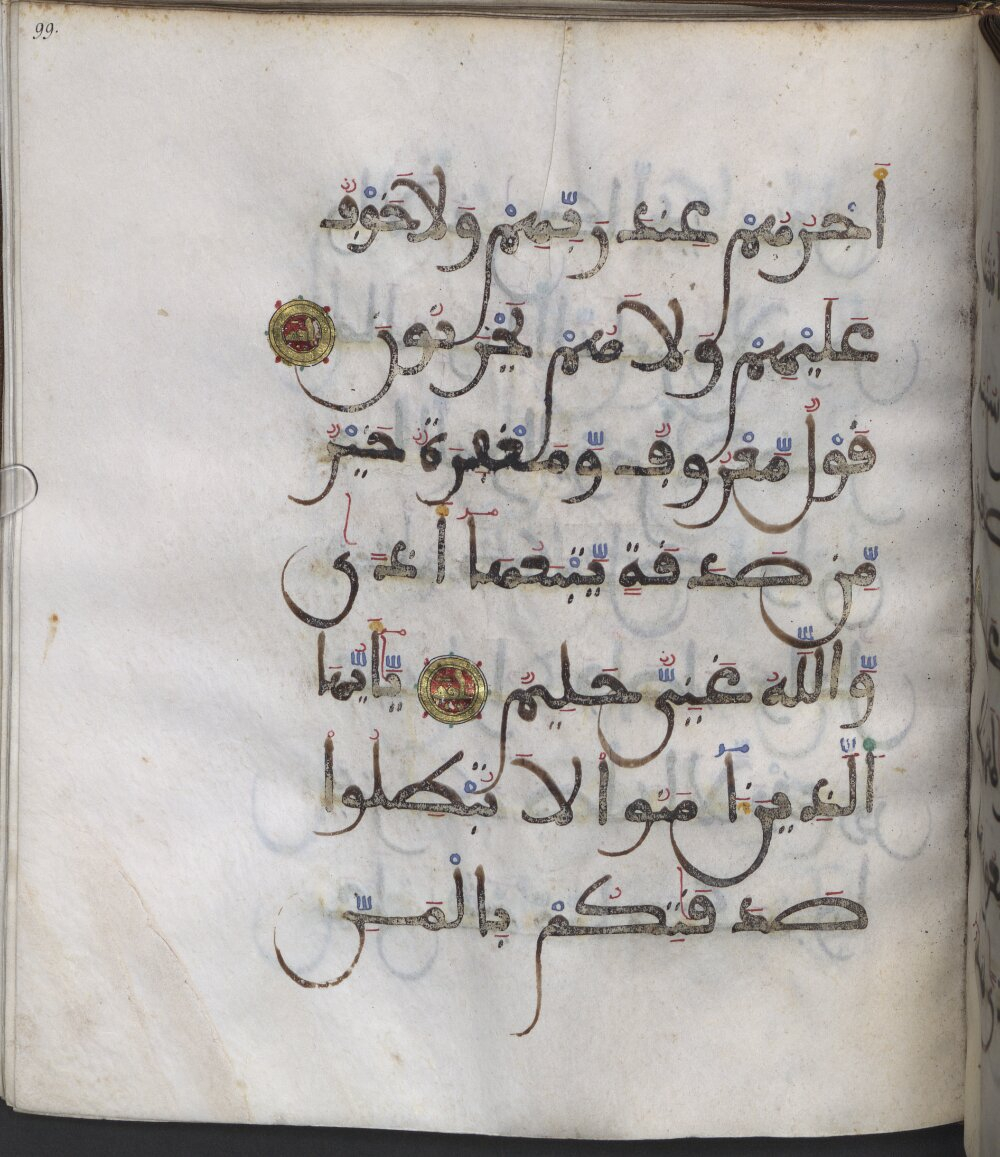 99.
أَجْرُهُمْ عِندَ رَبِّهِمْ وَلَا خَوْفٌ
عَلَيْهِمْ وَلَا هُمْ يَحْزَنُونَ
قَوْلٌ مَّعْرُوفٌ وَّمَغْفِرَةٌ خَيْرٌ
مِّن صَدَقَةٍ يَّتْبَعُهَآ أَذًى
وَّاللَّهُ غَنِيٌّ حَلِيمٌ يَٰٓأَيُّهَا
ٱلَّذِينَ ءَامَنُوا لَا تُبْطِلُوا
صَدَقَٰتِكُمْ بِالْمَنِّ